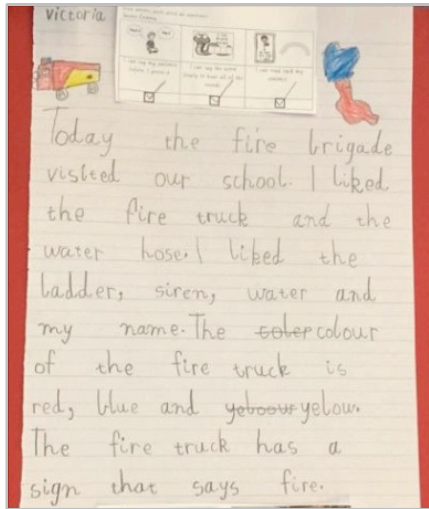 Victoria
Today the fire brigade
visited our school. I liked
the fire truck and the
water hose. I liked the
ladder, siren, water and
my name. The coler colour
of the fire truck is
red, blue and yeloour yelow.
The fire truck has a
sign that says fire.